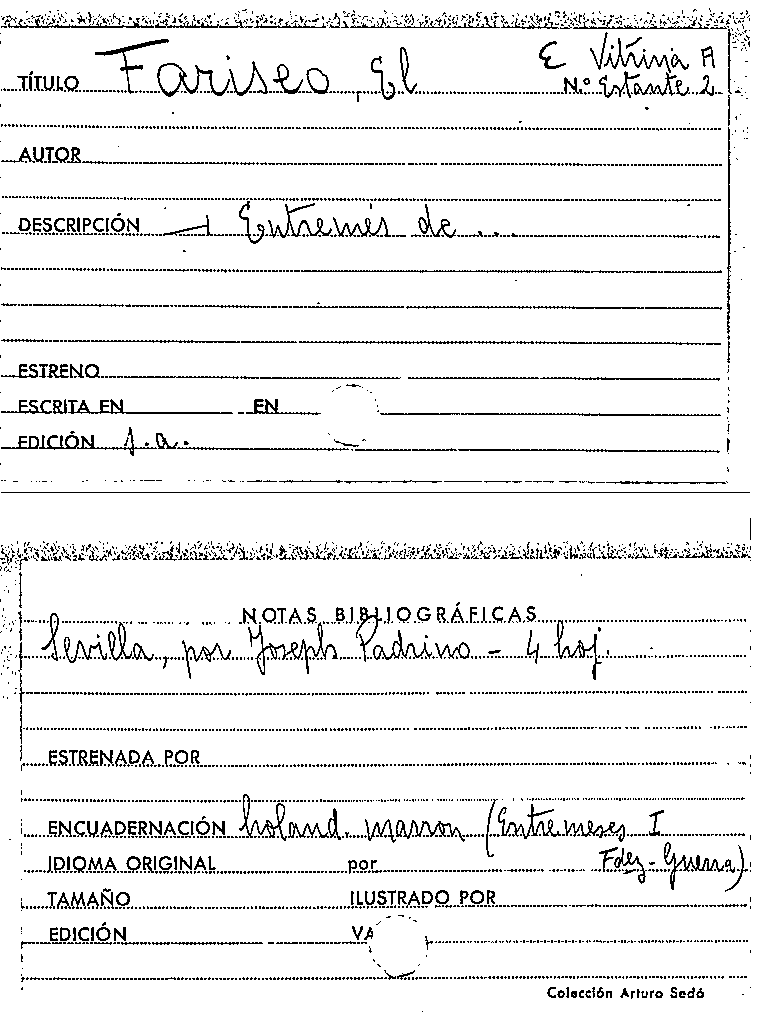 TÍTULO Fariseo, El E Vitrina A
N.º Estante 2
AUTOR
DESCRIPCIÓN Entremés de ...
ESTRENO
ESCRITA EN EN
EDICIÓN s.a.
NOTAS BIBLIOGRÁFICAS
Sevilla, por Joseph Padrino - 4 hoj.
ESTRENADA POR
ENCUADERNACIÓN holand. marron (Entremeses I
IDIOMA ORIGINAL por Fdez-Guerra)
TAMAÑO ILUSTRADO POR
EDICIÓN VA
Colección Arturo Sedó